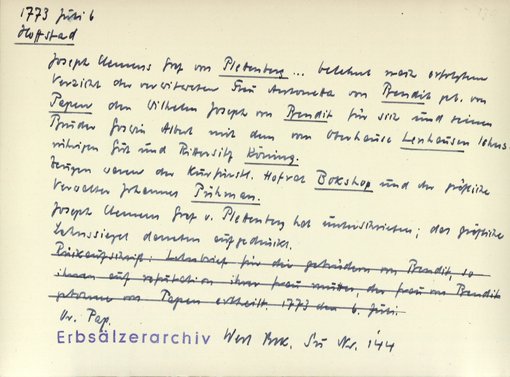 1773 Juli 6
Hoffstad
Joseph Clemens Graf von Pletenberg ... belehnt nach erfolgtem
Verzicht der verwitweten Frau Antoneta von Bendit geb. von
Papen den Wilhelm Joseph von Bendit für sich und seinen
Bruder Goswin Albert mit dem vom Oberhause Lenhausen lehns
rührigen Gut und Rittersitz Köning.
Zeugen waren der Kurfürstl. Hofrat Bokshop und der gräfliche
Verwalter Johannes Pühman.
Joseph Clemens Graf v. Pletenberg hat unterschrieben; das gräfliche
Lehnssiegel daneben aufgedrückt.
Rückaufschrift: Lehnbrief für die gebrüdern von Bendit, so
ihnen auf refutation ihrer frau mutter, der frau von Bendit
gebohrne von Papen ertheilt. 1773 den 6. Juli.
Or. Pap.
Erbsälzerarchiv Werl Brk. Nr. 144